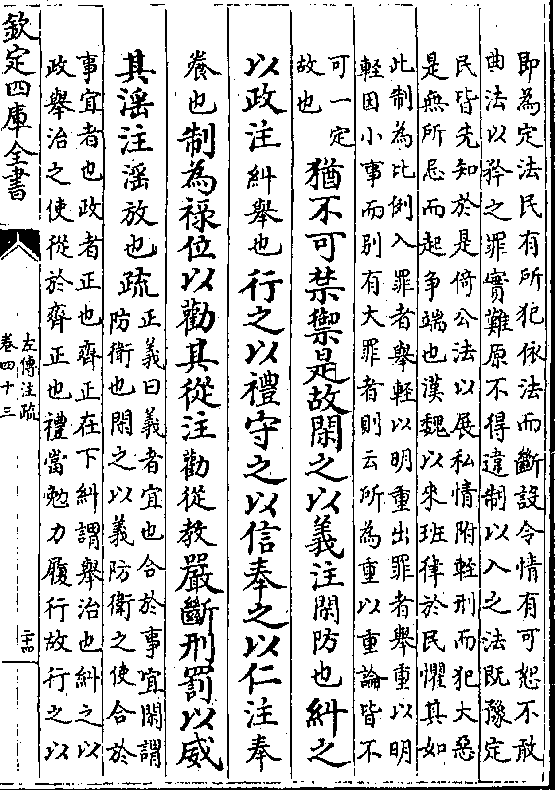 即為定法民有所犯依法而斷設令情有可恕不敢
曲法以矜之罪實難原不得違制以入之法既豫定
民皆先知於是倚公法以展私情附輕刑而犯大惡
是無所忌而起爭端也漢魏以來班律於民懼其如
此制為比例入罪者舉輕以明重出罪者舉重以明
輕因小事而別有大罪者則云所為重以重論皆不
可一定
故也
猶不可禁禦是故閑之以義注閑防也糾之
以政注糾舉也行之以禮守之以信奉之以仁注奉
養也制為祿位以勸其從注勸從教嚴斷刑罰以威
其淫注淫放也疏
正義曰義者宜也合於事宜閑謂
防衛也閑之以義防衛之使合於
事宜者也政者正也齊正在下糾謂舉治也糾之以
政舉治之使從於齊正也禮當勉力履行故行之以
欽定四庫全書
左傳注疏
卷四十三
二十四